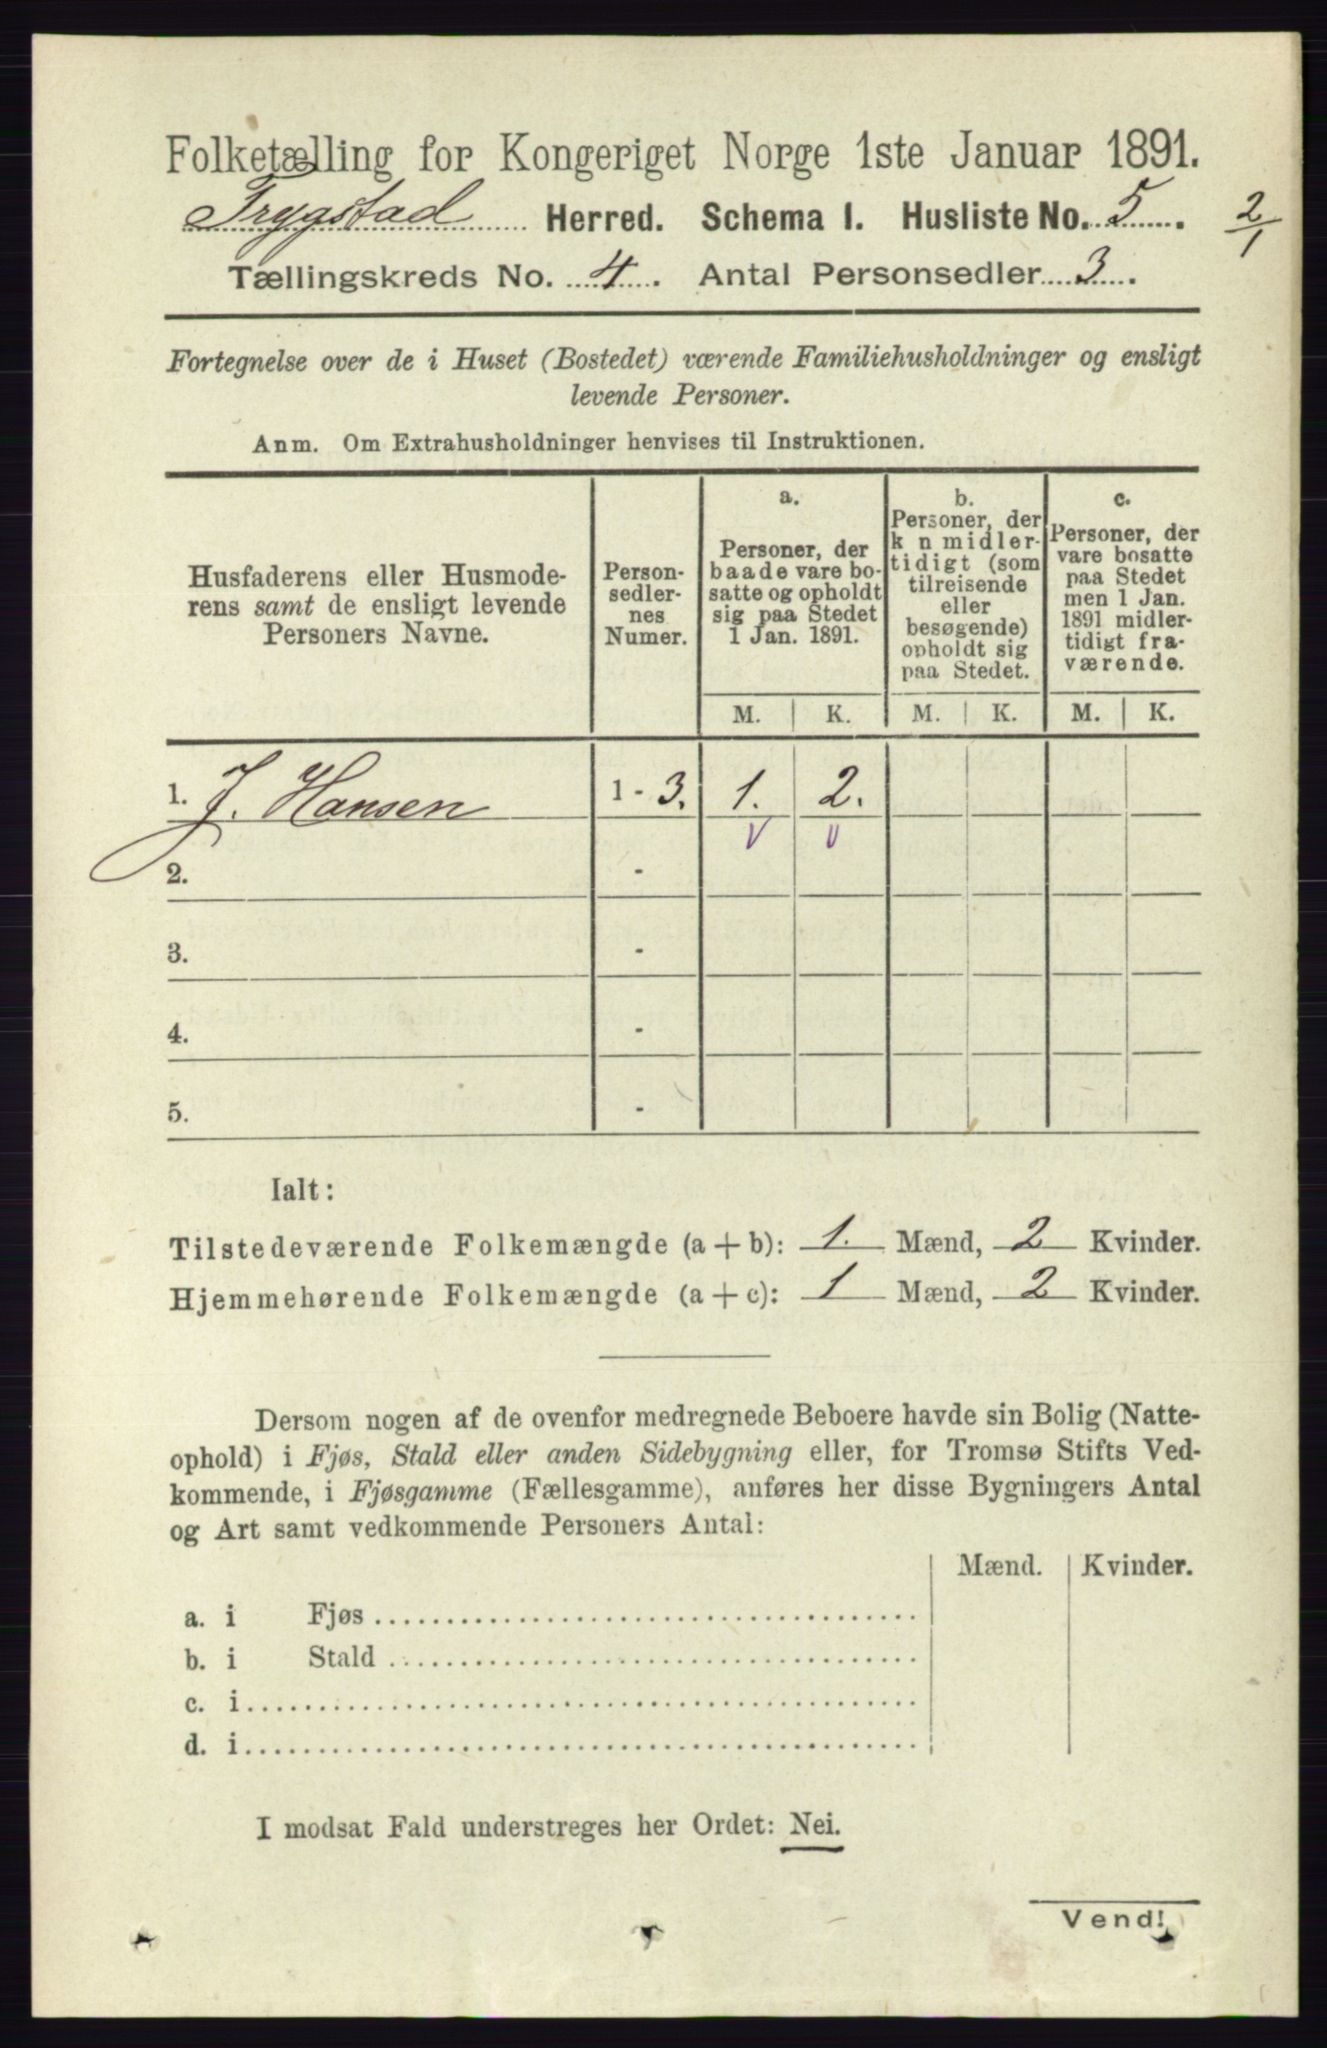 Folketælling for Kongeriget Norge 1ste Januar 1891.
Trygstad Herred. Schema I. Husliste No. 5. 2/1
Tællingskreds No. 4. Antal Personsedler 3.
Fortegnelse over de i Huset (Bostedet) værende Familiehusholdninger og ensligt
levende Personer.
Anm. Om Extrahusholdninger henvises til Instruktionen.
Husfaderens eller Husmode-
rens samt de ensligt levende
Personers Navne.
Person-
sedler-
nes
Numer.
a.
Personer, der
baade vare bo-
satte og opholdt
sig paa Stedet
1 Jan. 1891.
b.
Personer, der
k n midler-
tidigt (som
tilreisende
eller
besøgende)
opholdt sig
paa Stedet.
c.
Personer, der
vare bosatte
paa Stedet
men 1 Jan.
1891 midler-
tidigt fra-
værende.
M. K. M. K. M. K.
1. J. Hansen 1 - 3. 1. 2.
2. -
3. -
4. -
5. -
Ialt:
Tilstedeværende Folkemængde (a + b): 1. Mænd, 2 Kvinder.
Hjemmehørende Folkemængde (a + c): 1 Mænd, 2 Kvinder.
Dersom nogen af de ovenfor medregnede Beboere havde sin Bolig (Natte-
ophold) i Fjøs, Stald eller anden Sidebygning eller, for Tromsø Stifts Ved-
kommende, i Fjøsgamme (Fællesgamme), anføres her disse Bygningers Antal
og Art samt vedkommende Personers Antal:
Mænd. Kvinder.
a. i Fjøs
b. i Stald
c. i
d. i
I modsat Fald understreges her Ordet: Nei.
Vend!